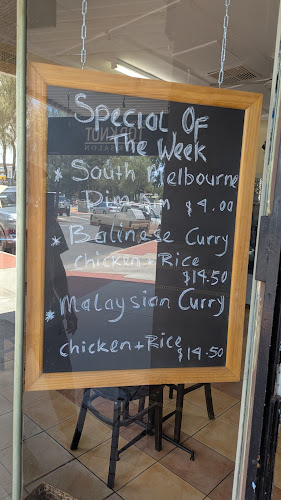 Special Of
The Week
* South Melbourne
Dim Sim $4.00
* Balinese Curry
Chicken + Rice
$14.50
* Malaysian Curry
chicken + Rice
$14.50
TOPKNOT
SALON